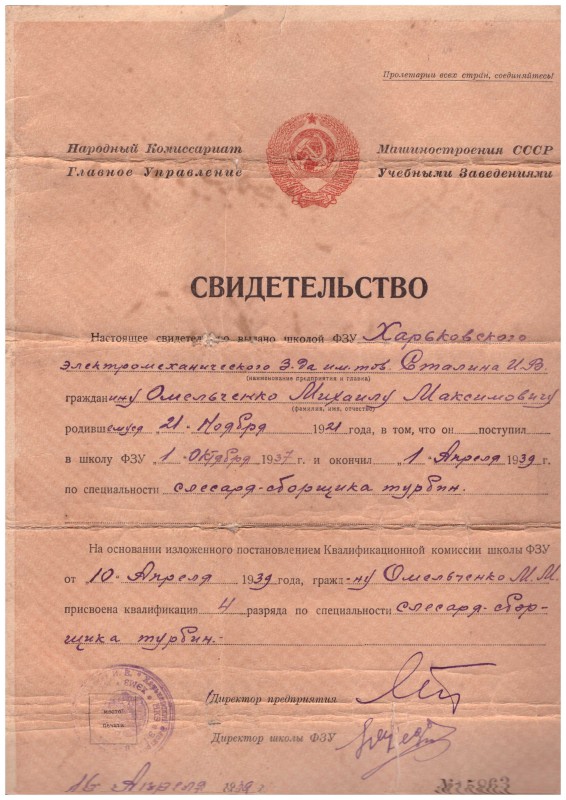 Пролетарии всех стран, соединяйтесь!
Народный Комиссариат Машиностроения СССР
Главное Управление Учебными Заведениями
СВИДЕТЕЛЬСТВО
Настоящее свидетельство выдано школой ФЗУ Харьковского
электромеханического З-да им. тов. Сталина И.В.
(наименование предприятия и главка)
гражданину Омельченко Михаилу Максимовичу
(фамилия, имя, отчество)
родившемуся 21 Ноября 1921 года, в том, что он поступил
в школу ФЗУ 1 Октября 1937 г. и окончил 1 Апреля 1939 г.
по специальности слесаря-сборщика турбин.
На основании изложенного постановлением Квалификационной комиссии школы ФЗУ
от 10 Апреля 1939 года, гражд-ну Омельченко М.М.
присвоена квалификация 4 разряда по специальности слесаря-сбор-
щика турбин.
Директор предприятия
Директор школы ФЗУ
16 Апреля 1939 г.